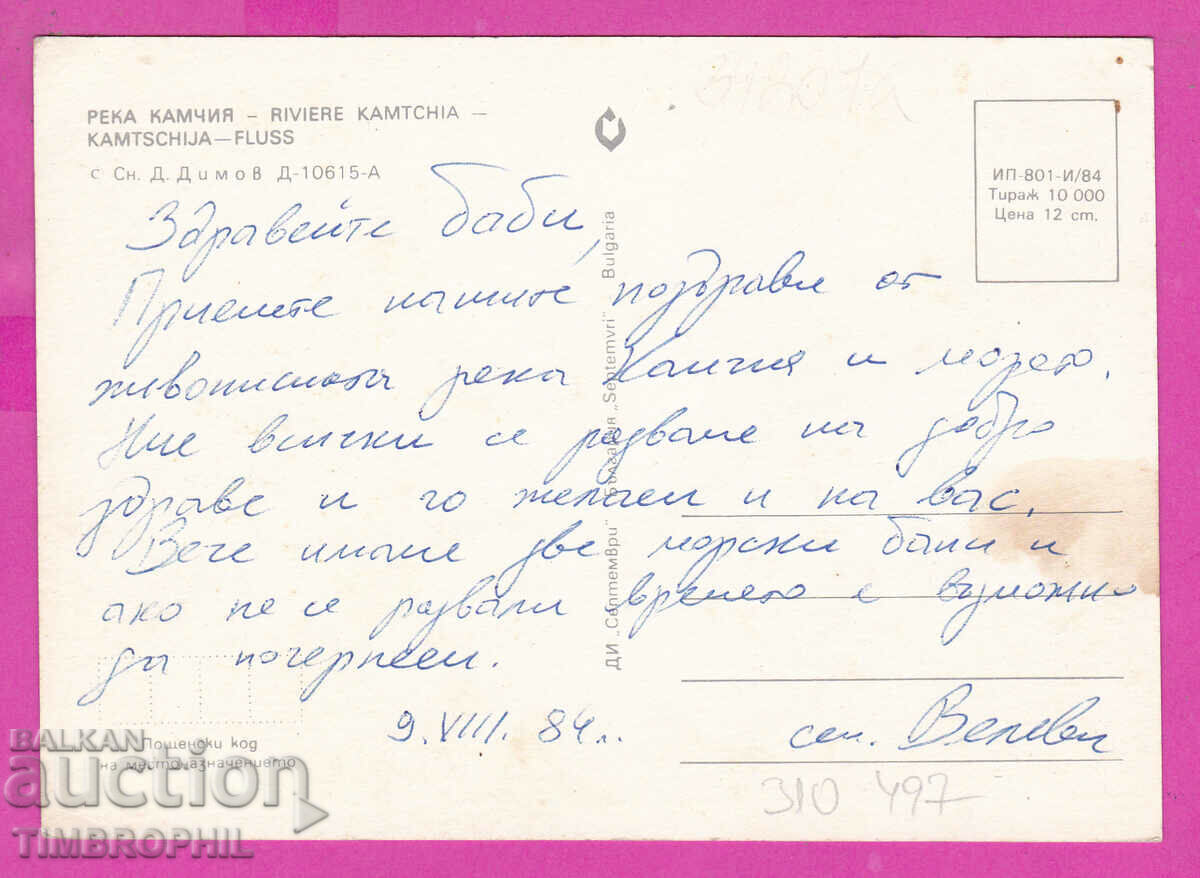 РЕКА КАМЧИЯ – RIVIERE KAMTCHIA –
KAMTSCHIJA—FLUSS
с Сн. Д. Димов Д-10615-А
ИП-801-И/84
Тираж 10 000
Цена 12 ст.
Здравейте баби,
Приемете нашите поздрави от
живописната река Камчия и морето.
Ние всички се радваме на добро
здраве и го желаем и на вас.
Вече имаме две морски бани и
ако не се развали времето е възможно
да почернеем.
9.VIII.84г.
сем. Велеви
ДИ „Септември" България „Septemvri" Bulgaria
Пощенски код
на местоназначението
310 497
BALKAN
auction
TIMBROPHIL